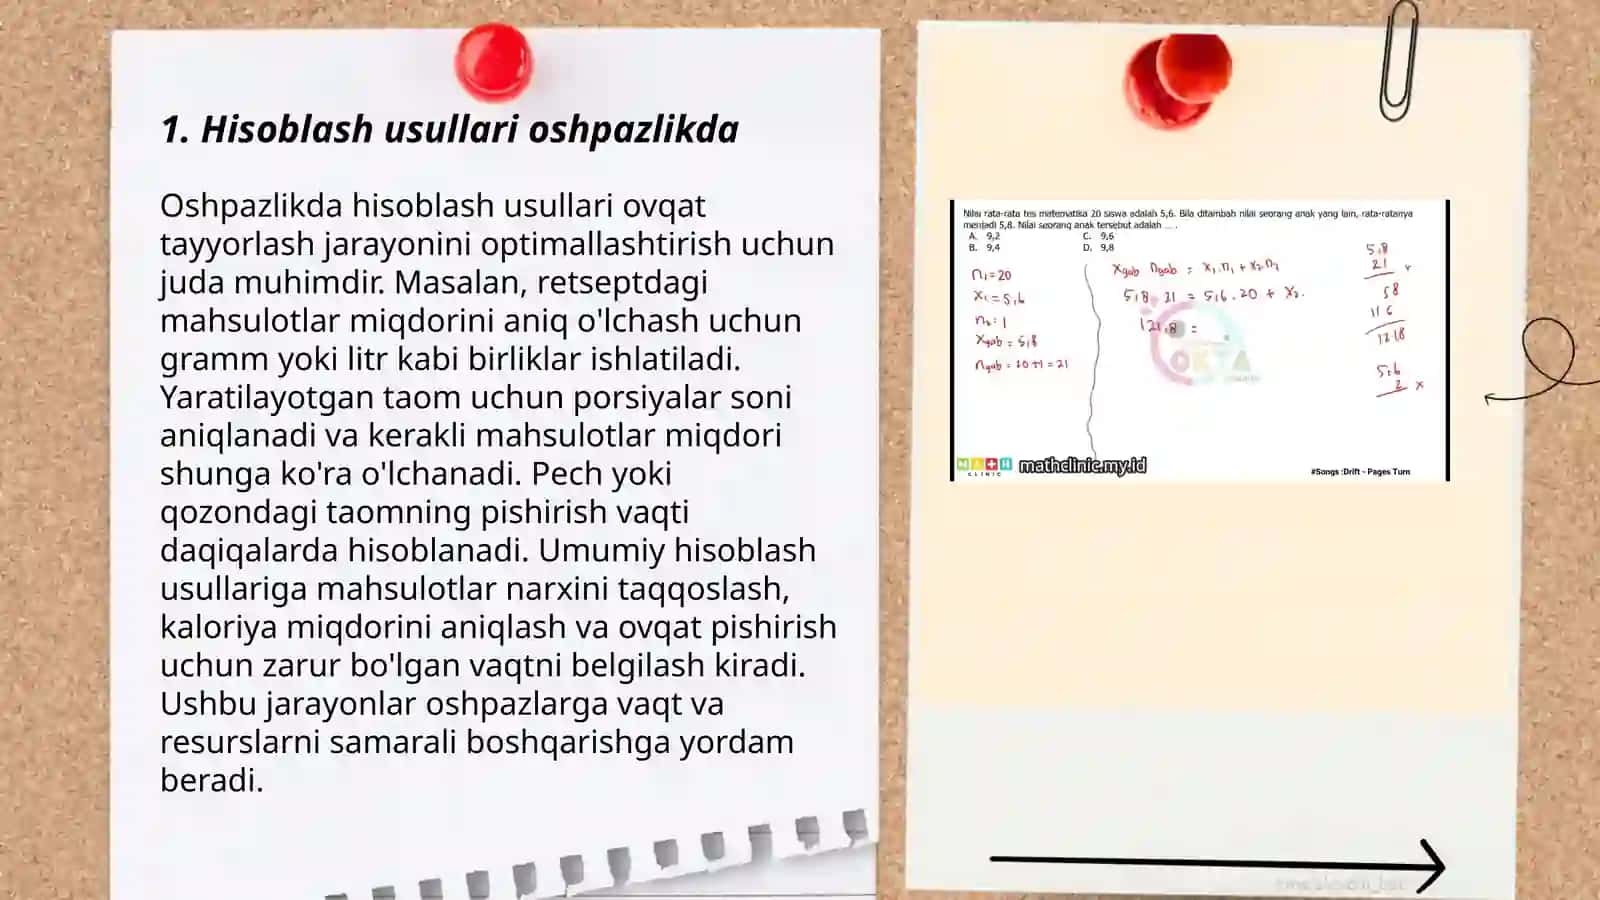 1. Hisoblash usullari oshpazlikda
Oshpazlikda hisoblash usullari ovqat
tayyorlash jarayonini optimallashtirish uchun
juda muhimdir. Masalan, retseptdagi
mahsulotlar miqdorini aniq o'lchash uchun
gramm yoki litr kabi birliklar ishlatiladi.
Yaratilayotgan taom uchun porsiyalar soni
aniqlanadi va kerakli mahsulotlar miqdori
shunga ko'ra o'lchanadi. Pech yoki
qozondagi taomning pishirish vaqti
daqiqalarda hisoblanadi. Umumiy hisoblash
usullariga mahsulotlar narxini taqqoslash,
kaloriya miqdorini aniqlash va ovqat pishirish
uchun zarur bo'lgan vaqtni belgilash kiradi.
Ushbu jarayonlar oshpazlarga vaqt va
resurslarni samarali boshqarishga yordam
beradi.
Nilai rata-rata tes matematika 20 siswa adalah 5,6. Bila ditambah nilai seorang anak yang lain, rata-ratanya
menjadi 5,8. Nilai seorang anak tersebut adalah ... .
A. 9,2 C. 9,6
B. 9,4 D. 9,8
n₁ = 20
x₁ = 5,6
n₂ = 1
xgab = 5,8
ngab = 20 + 1 = 21
xgab ngab = x₁.n₁ + x₂.n₂
5,8 . 21 = 5,6 . 20 + x₂.
121,8 =
5,8
21 x
58
116
121,8
5,6
2 x
OKTA
MATH
CLINIC
mathclinic.my.id
#Songs :Drift - Pages Turn